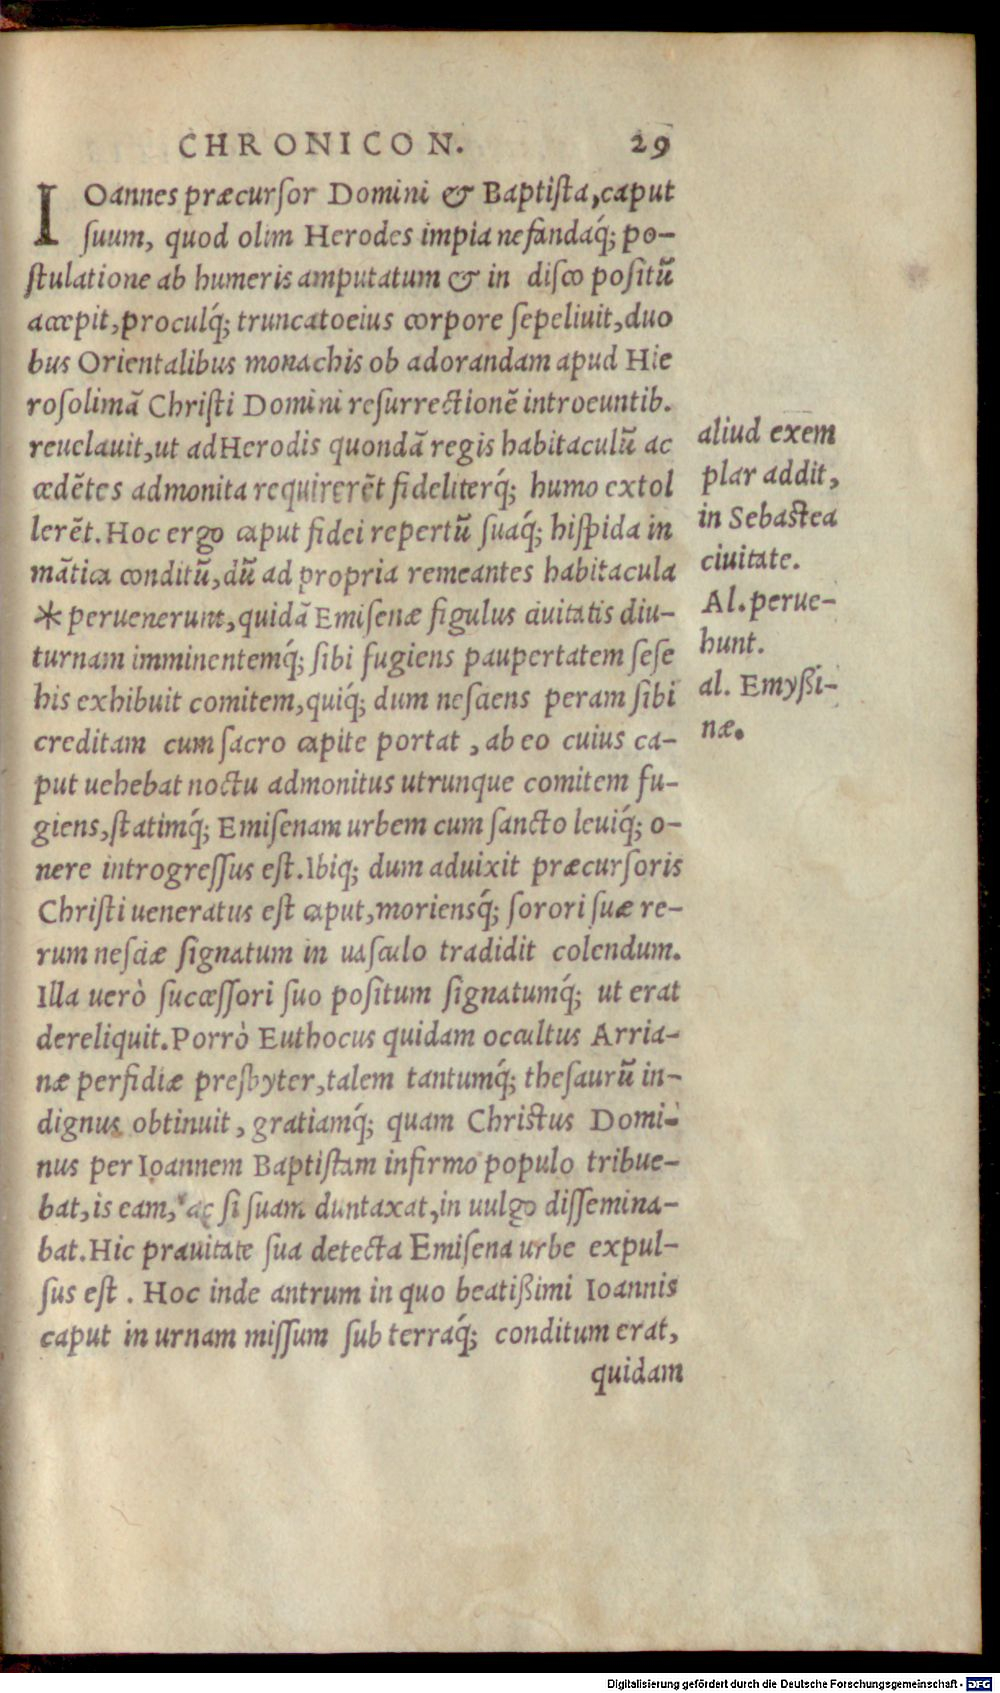 CHRONICON. 29
IOannes præcursor Domini & Baptista, caput
suum, quod olim Herodes impia nefandaq́; po-
stulatione ab humeris amputatum & in disco positū
accepit, proculq́; truncato eius corpore sepeliuit, duo
bus Orientalibus monachis ob adorandam apud Hie
rosolimā Christi Domini resurrectionē introeuntib.
reuelauit, ut ad Herodis quondā regis habitaculū ac
cedētes admonita requirerēt fideliterq́; humo extol
lerēt. Hoc ergo caput fidei repertū suaq́; hispida in
māticа conditū, dū ad propria remeantes habitacula
* peruenerunt, quidā Emisenæ figulus ciuitatis diu-
turnam imminentemq́; sibi fugiens paupertatem sese
his exhibuit comitem, quiq́; dum nesciens peram sibi
creditam cum sacro capite portat, ab eo cuius ca-
put uehebat noctu admonitus utrunque comitem fu-
giens, statimq́; Emisenam urbem cum sancto leuiq́; o-
nere introgressus est. Ibiq; dum aduixit præcursoris
Christi ueneratus est caput, moriensq́; sorori suæ re-
rum nesciæ signatum in uasculo tradidit colendum.
Illa uerò successori suo positum signatumq́; ut erat
dereliquit. Porrò Euthocus quidam occultus Arria-
næ perfidiæ presbyter, talem tantumq́; thesaurū in-
dignus obtinuit, gratiamq́; quam Christus Domi-
nus per Ioannem Baptistam infirmo populo tribue-
bat, is eam, ac si suam duntaxat, in uulgo dissemina-
bat. Hic prauitate sua detecta Emisena urbe expul-
sus est. Hoc inde antrum in quo beatißimi Ioannis
caput in urnam missum sub terraq́; conditum erat,
quidam
aliud exem
plar addit,
in Sebastea
ciuitate.
Al. perue-
hunt.
al. Emyßi-
næ.
Digitalisierung gefördert durch die Deutsche Forschungsgemeinschaft - DFG